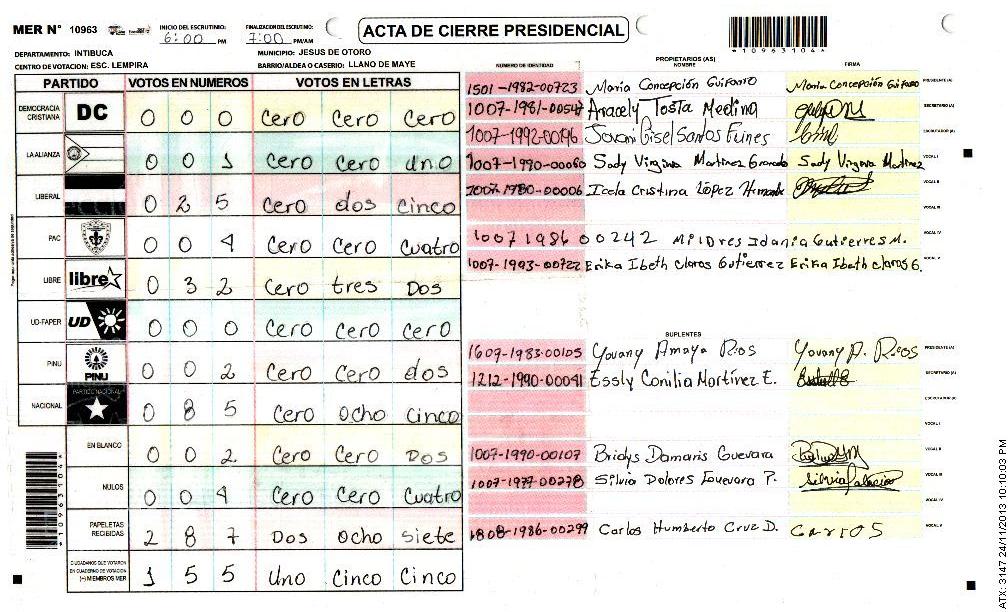 MER N° 10963
INICIO DEL ESCRUTINIO: 6:00 PM
FINALIZACION DEL ESCRUTINIO: 7:00 PM/AM
ACTA DE CIERRE PRESIDENCIAL
*10963104*
DEPARTAMENTO: INTIBUCA
MUNICIPIO: JESUS DE OTORO
CENTRO DE VOTACION: ESC. LEMPIRA
BARRIO/ALDEA O CASERIO: LLANO DE MAYE
PARTIDO VOTOS EN NUMEROS VOTOS EN LETRAS
DEMOCRACIA CRISTIANA DC 0 0 0 Cero Cero Cero
LA ALIANZA 0 0 1 Cero Cero uno
LIBERAL 0 2 5 Cero dos Cinco
PAC 0 0 4 Cero Cero Cuatro
LIBRE libre 0 3 2 Cero tres Dos
UD-FAPER UD 0 0 0 Cero Cero Cero
PINU PINU 0 0 2 Cero Cero dos
NACIONAL PARTIDO NACIONAL 0 8 5 Cero Ocho Cinco
EN BLANCO 0 0 2 Cero Cero Dos
NULOS 0 0 4 Cero Cero Cuatro
PAPELETAS RECIBIDAS 2 8 7 Dos Ocho siete
CIUDADANOS QUE VOTARON EN CUADERNO DE VOTACION (+) MIEMBROS MER 1 5 5 Uno Cinco Cinco
*10963104*
PROPIETARIOS (AS)
NUMERO DE IDENTIDAD NOMBRE FIRMA
1501-1982-00723 Maria Concepción Guifarro Maria Concepción Guifarro PRESIDENTE (A)
1007-1981-00547 Aracely Tosta Medina SECRETARIO (A)
1007-1992-00196 Jovani Gisel Santos Funes ESCRUTADOR (A)
1007-1990-00060 Sady Virginia Martinez Sady Virginia Martinez VOCAL I
1007-1980-00006 Icela Cristina López VOCAL II
VOCAL III
1007 1986 00242 Mildres Idania Gutierres M. VOCAL IV
1007-1993-00722 Erika Ibeth Claros Gutierrez Erika Ibeth Claros G. VOCAL V
SUPLENTES
1609-1983-00105 Yovany Amaya Rios Yovany A. Rios PRESIDENTE (A)
1212-1990-00041 Essly Conilia Martínez E. SECRETARIO (A)
ESCRUTADOR (A)
VOCAL I
1007-1990-00107 Bridys Damaris Guevara VOCAL II
1007-1977-00278 Silvia Dolores P. VOCAL III
VOCAL IV
1808-1986-00299 Carlos Humberto Cruz D. Carlos VOCAL V
ATX: 3147 24/11/2013 10:10:03 PM